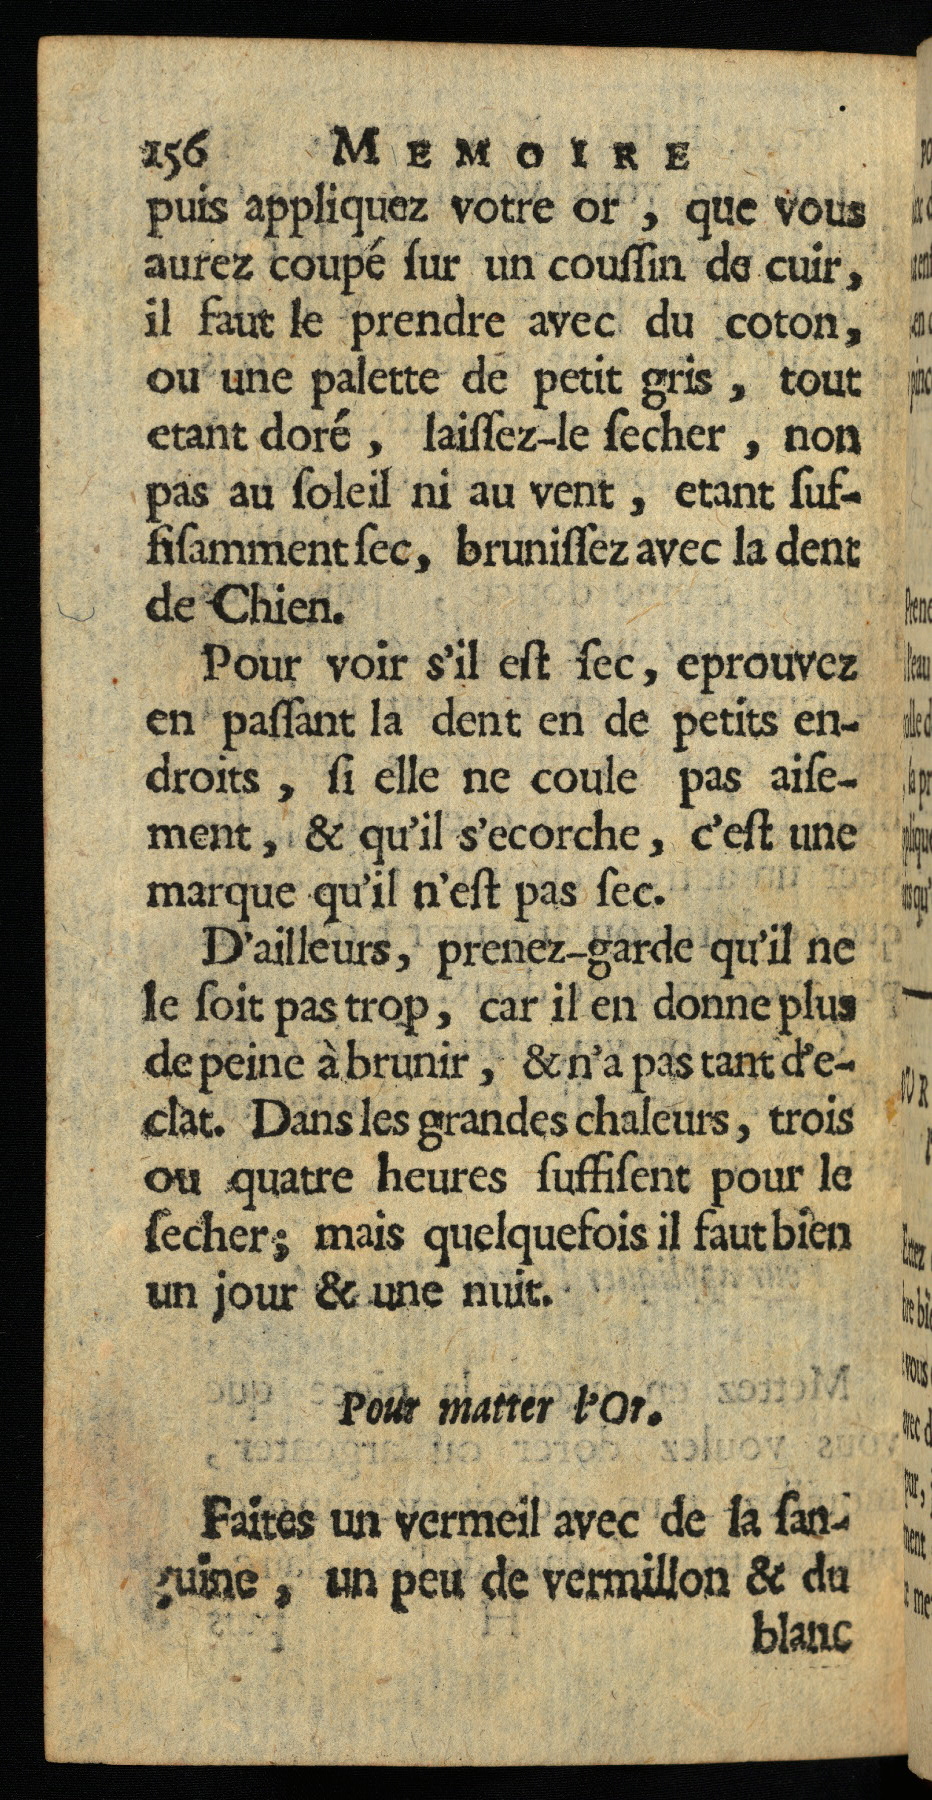 156 MEMOIRE
puis appliquez votre or , que vous
aurez coupé ſur un couſſin de cuir,
il faut le prendre avec du coton,
ou une palette de petit gris , tout
etant doré , laiſſez-le ſecher , non
pas au ſoleil ni au vent , etant ſuf-
fiſamment ſec, bruniſſez avec la dent
de Chien.
Pour voir s'il eſt ſec, eprouvez
en paſſant la dent en de petits en-
droits , ſi elle ne coule pas aiſe-
ment, & qu'il s'ecorche, c'eſt une
marque qu'il n'eſt pas ſec.
D'ailleurs, prenez-garde qu'il ne
le ſoit pas trop, car il en donne plus
de peine à brunir , & n'a pas tant d'e-
clat. Dans les grandes chaleurs, trois
ou quatre heures ſuffiſent pour le
ſecher; mais quelquefois il faut bien
un jour & une nuit.
Pour matter l'Or.
Faites un vermeil avec de la ſan-
guine , un peu de vermillon & du
blanc